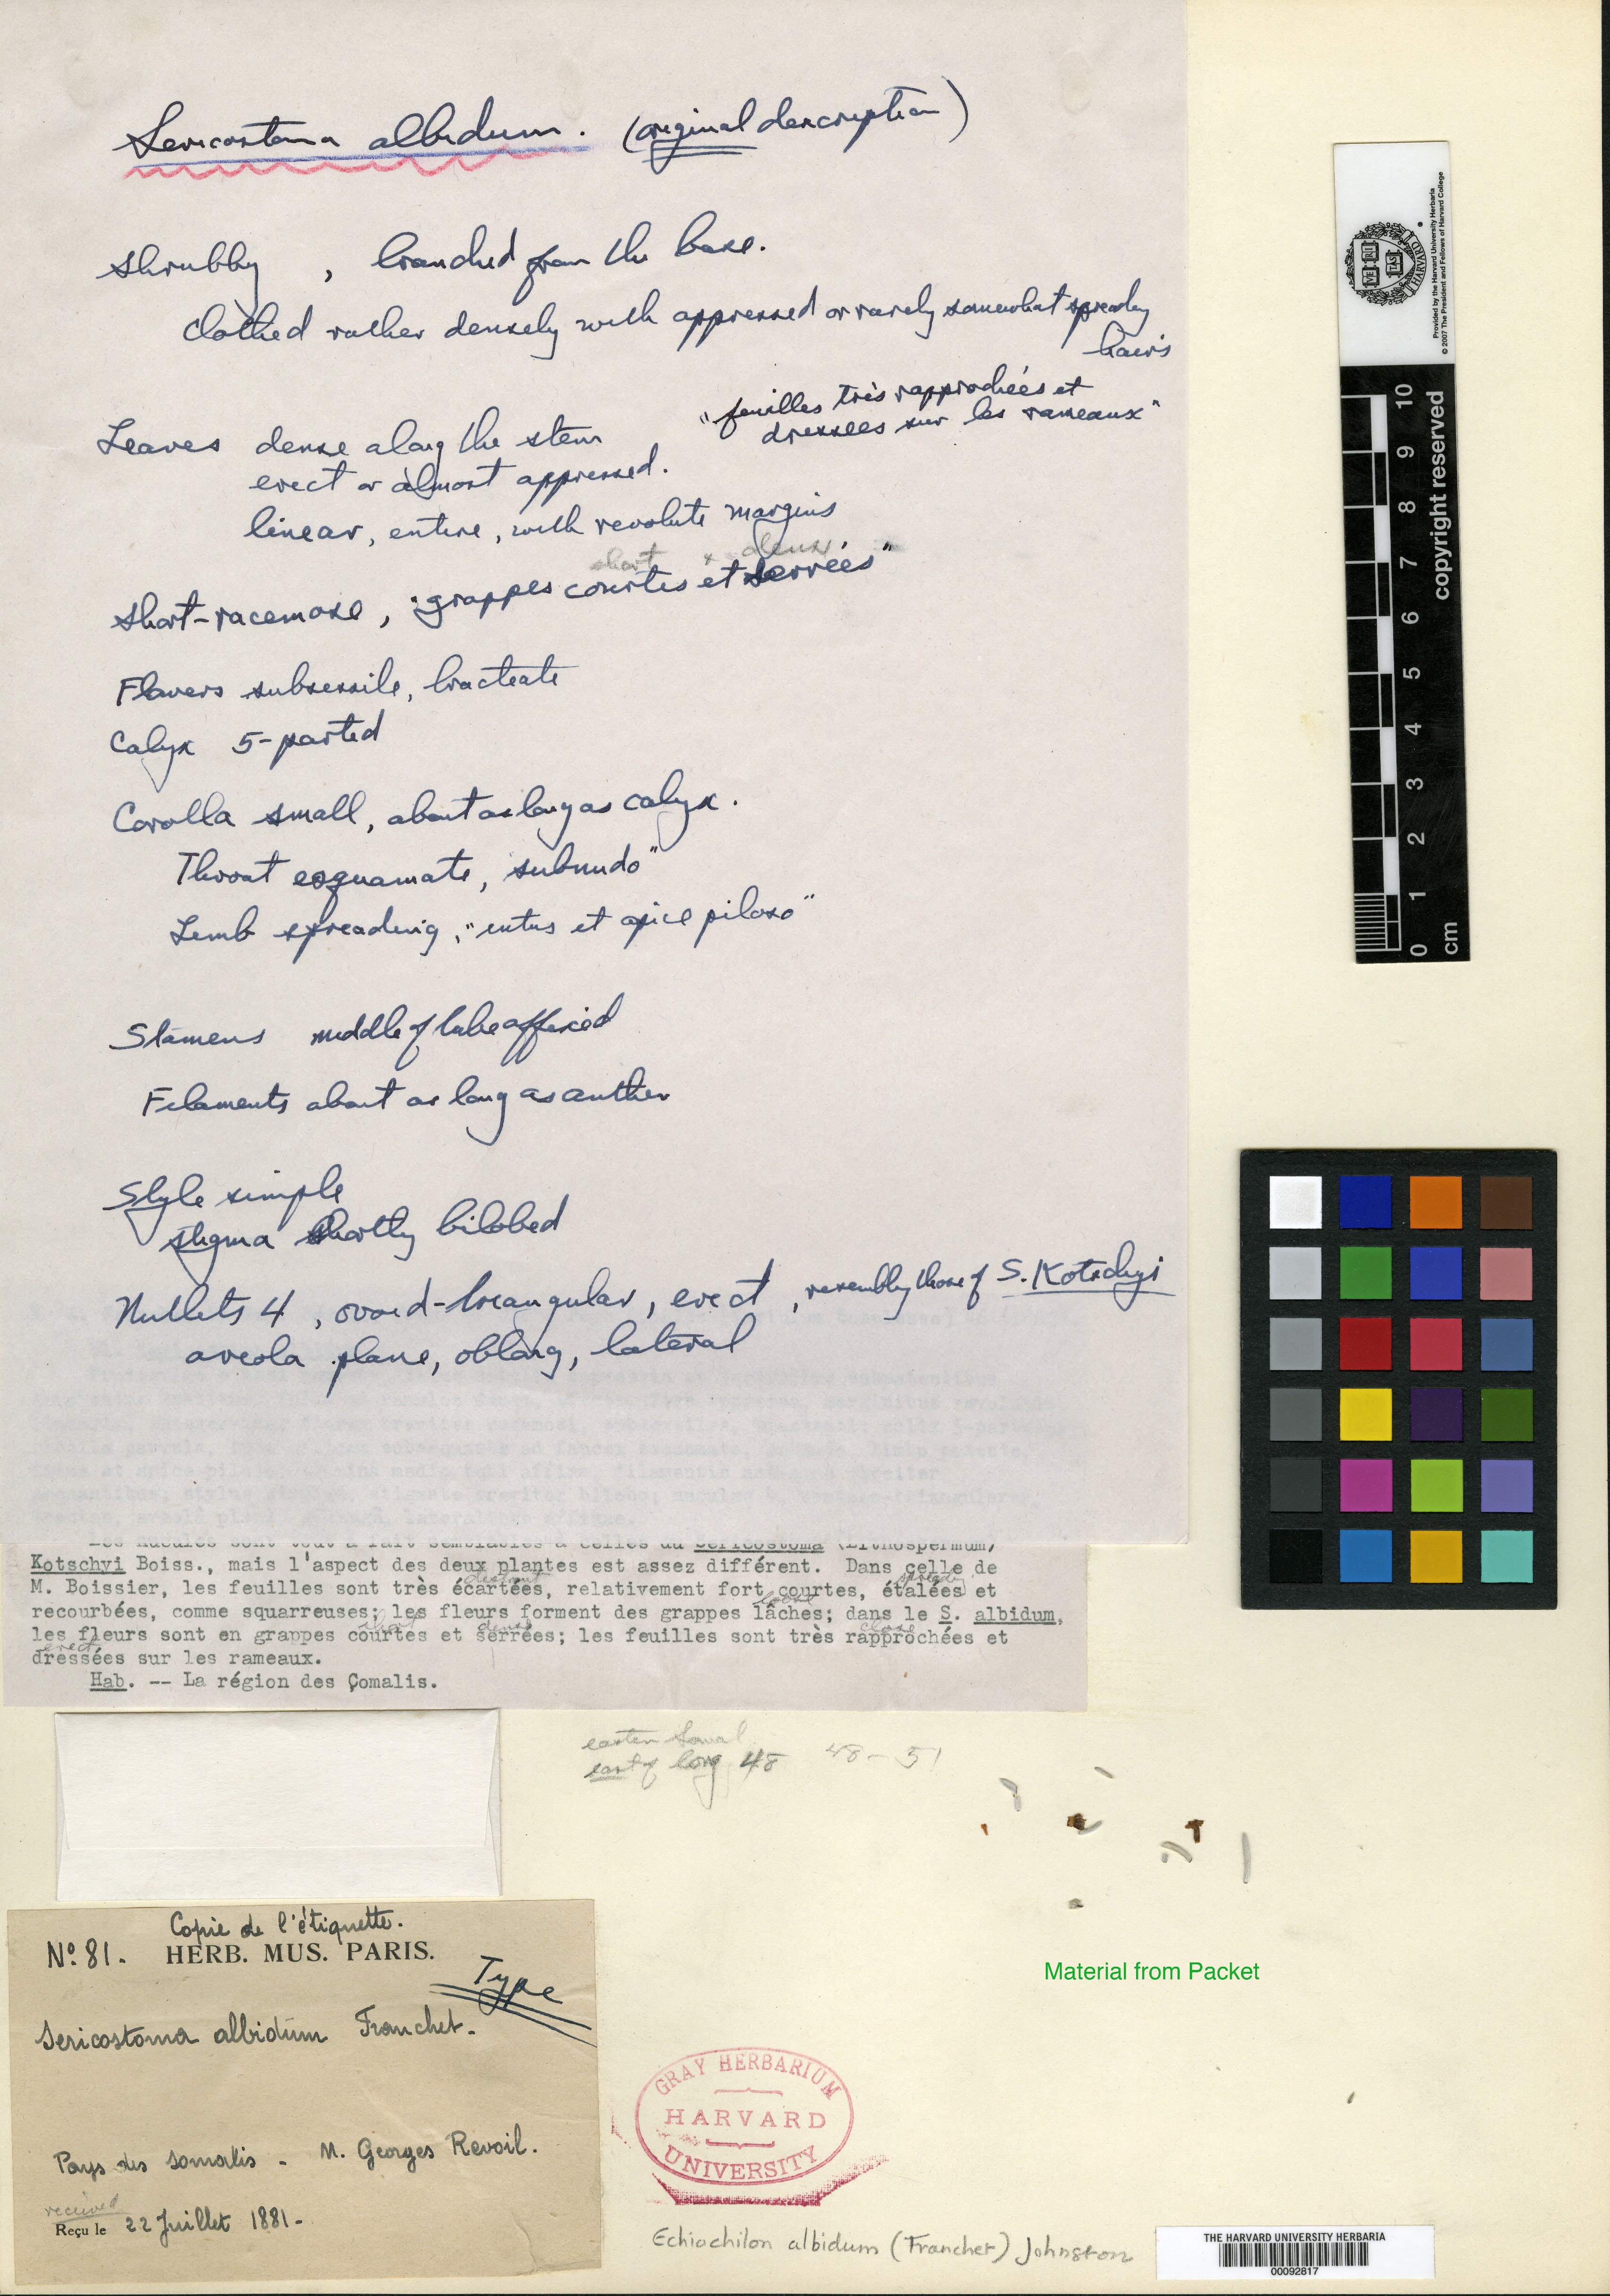 Sericostoma albidum. (original description)
Shrubby , branched from the base.
Clothed rather densely with appressed or rarely somewhat spreading
hairs
"feuilles très rapprochées et
dressées sur les rameaux"
Leaves dense along the stem
erect or almost appressed.
linear, entire, with revolute margins
short x dense
short-racemose, "grappes courtes et serrées"
Flowers subsessile, bracteate
Calyx 5-parted
Corolla small, about as long as calyx.
Throat esquamate, subnudo"
Limb spreading, "intus et apice piloso"
Stamens middle of tube affixed
Filaments about as long as anther
Style simple
stigma shortly bilobed
Nutlets 4, ovoid-triangular, erect, resembling those of S. Kotschyi
areola plane, oblong, lateral
Les nucules sont tout à fait semblables à celles du Sericostoma (Lithospermum)
Kotschyi Boiss., mais l'aspect des deux plantes est assez différent. Dans celle de
distant spreading
M. Boissier, les feuilles sont très écartées, relativement fort courtes, étalées et
loose
recourbées, comme squarreuses; les fleurs forment des grappes lâches; dans le S. albidum,
short dense close
les fleurs sont en grappes courtes et serrées; les feuilles sont très rapprochées et
erect
dressées sur les rameaux.
Hab. -- La région des Çomalis.
eastern Somal
east of long 48 48-51
Copie de l'étiquette.
No. 81. HERB. MUS. PARIS.
Type
Sericostoma albidum Franchet.
Pays des Somalis - M. Georges Revoil.
received
Reçu le 22 Juillet 1881-
Material from Packet
GRAY HERBARIUM
HARVARD
UNIVERSITY
Echiochilon albidum (Franchet) Johnston
THE HARVARD UNIVERSITY HERBARIA
00092817
Provided by the Harvard University Herbaria
© 2007 The President and Fellows of Harvard College
HARVARD
VE RI TAS
copyright reserved
10
9
8
7
6
5
4
3
2
1
0
cm